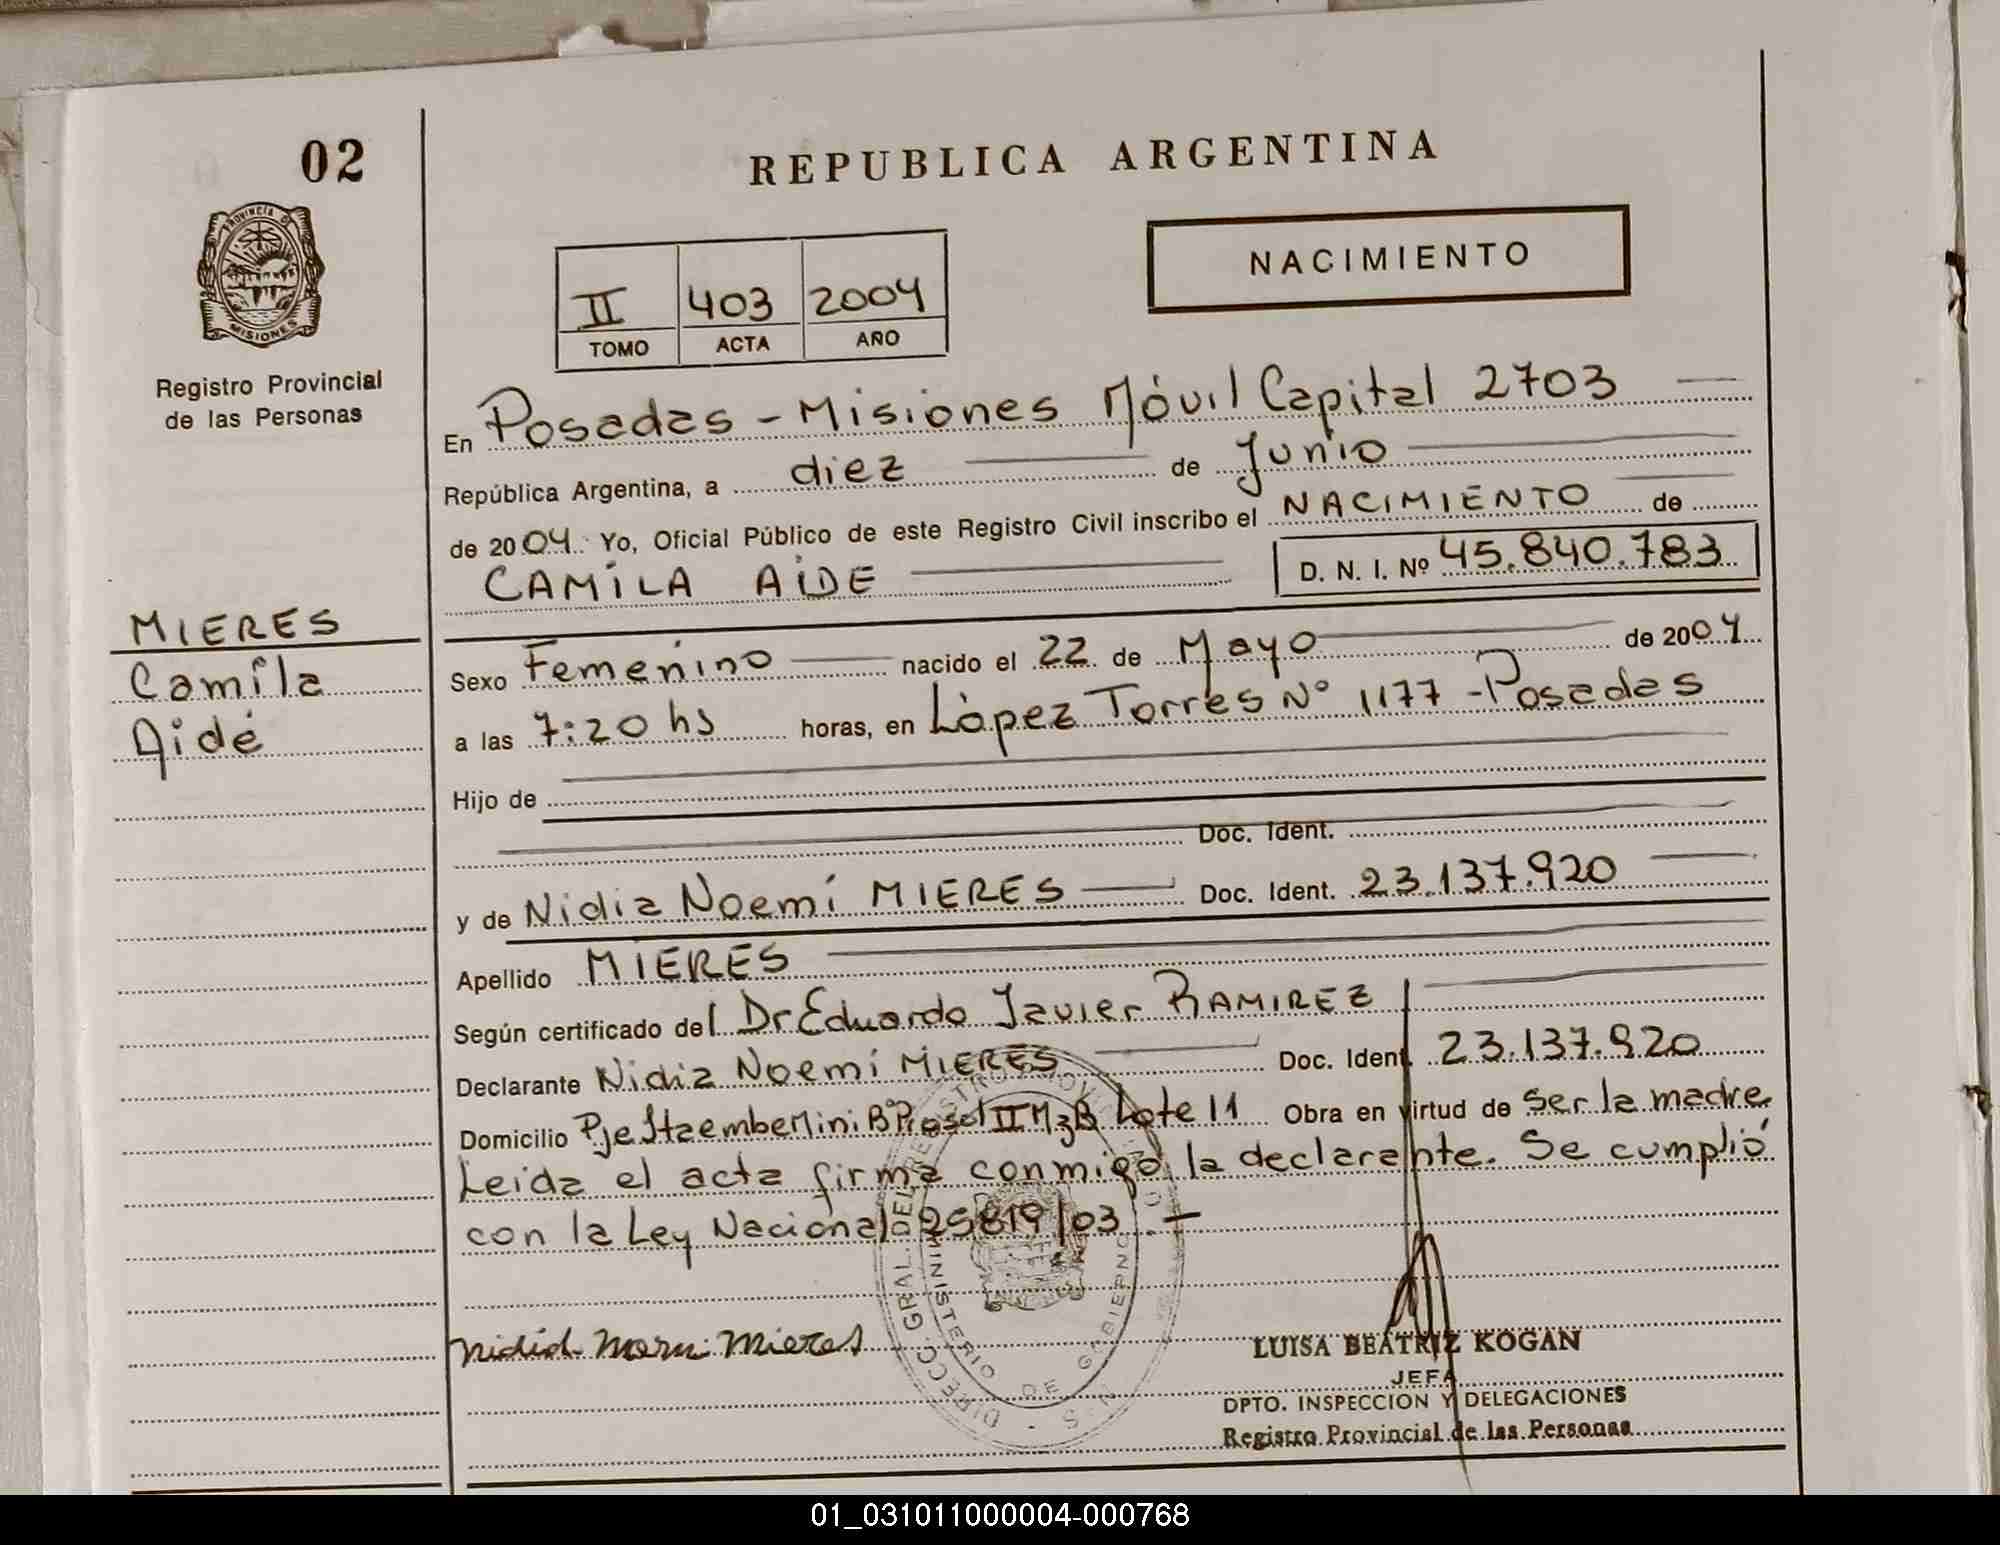 02
REPUBLICA ARGENTINA
PROVINCIA DE
MISIONES
Registro Provincial
de las Personas
II 403 2004
TOMO ACTA AÑO
NACIMIENTO
En Posadas - Misiones Móvil Capital 2703
República Argentina, a diez de Junio
de 2004. Yo, Oficial Público de este Registro Civil inscribo el NACIMIENTO de
CAMILA AIDE D. N. I. Nº 45.840.783
MIERES
Camila
Aidé
Sexo Femenino nacido el 22 de Mayo de 2004
a las 7:20 hs horas, en López Torres Nº 1177 - Posadas
Hijo de
Doc. Ident.
y de Nidia Noemí MIERES Doc. Ident. 23.137.920
Apellido MIERES
Según certificado del Dr Eduardo Javier RAMIREZ
Declarante Nidia Noemí MIERES Doc. Ident. 23.137.920
Domicilio Pje Lote 11 Obra en virtud de ser la madre.
Leida el acta firma conmigo la declarante. Se cumplió
con la Ley Nacional 25819/03.-
DIRECC. GRAL. DEL REGISTRO
MINISTERIO DE GOBIERNO
Mieres
LUISA BEATRIZ KOGAN
JEFA
DPTO. INSPECCION Y DELEGACIONES
Registro Provincial de las Personas
01_031011000004-000768